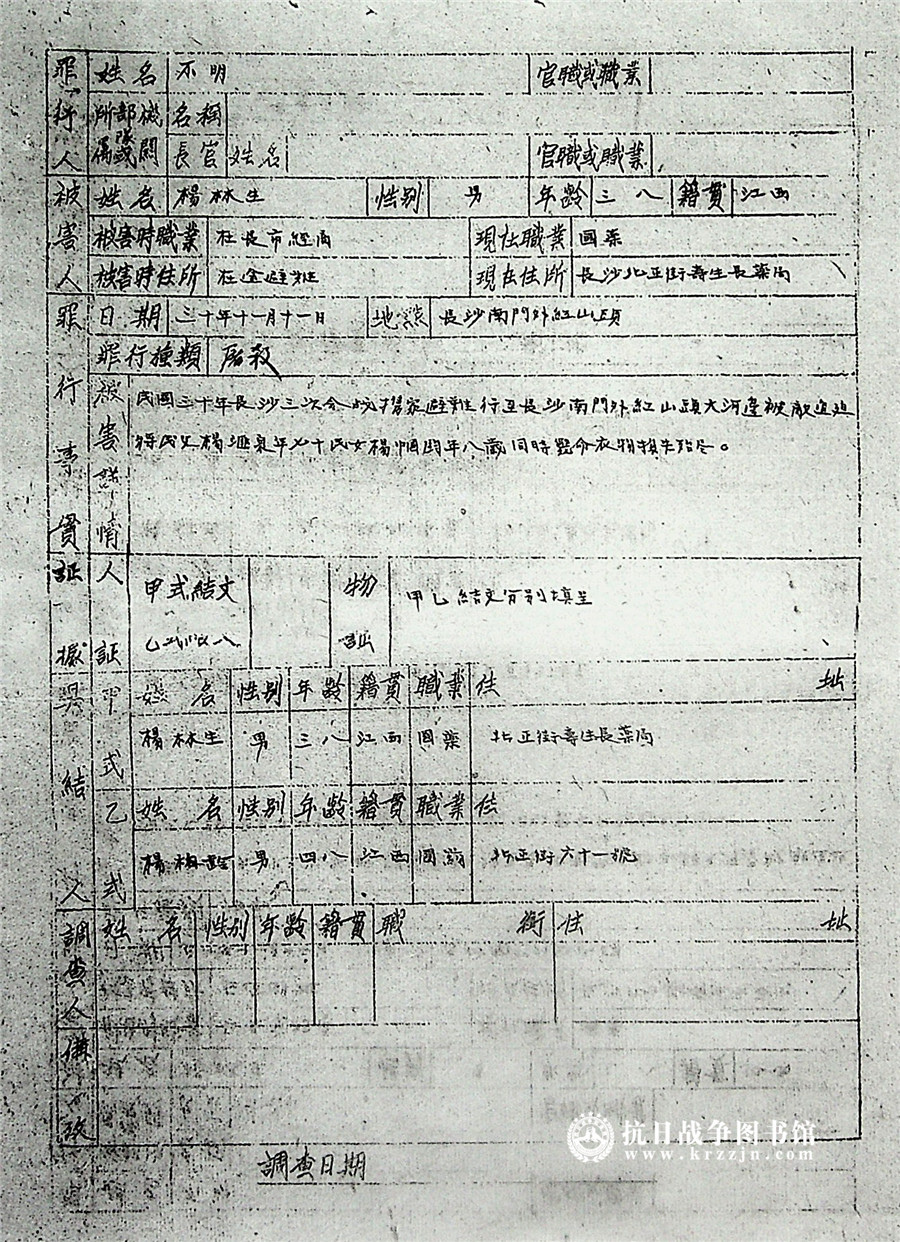 罪行人 姓名 不明 官職或職業
所部機屬隊或關 名稱
長官姓名 官職或職業
被害人 姓名 楊林生 性別 男 年齡 三八 籍貫 江西
被害時職業 在長市經商 現在職業 國藥
被害時住所 在途避難 現在住所 長沙北正街壽生長藥局
罪行事實 日期 三十年十一月十一日 地點 長沙南門外紅山頭
罪行種類 屠殺
被害詳情 民國三十年長沙三次會戰 避難行至長沙南門外紅山頭大河邊被敵追迫
將民父楊 泉年七十民女楊 年八歲同時斃命衣物損失殆盡。
証據 人証 甲式結文 物証 甲乙結文分别填呈
乙式
具結人 甲式 姓名 性別 年齡 籍貫 職業 住址
楊林生 男 三八 江西 國藥 北正街壽生長藥局
乙式 姓名 性別 年齡 籍貫 職業 住
楊梅 男 四八 江西 國藥 北正街六十一號
調查人 姓名 性別 年齡 籍貫 職銜 住址
備攷
調查日期
抗日战争图书馆
www.krzzjn.com